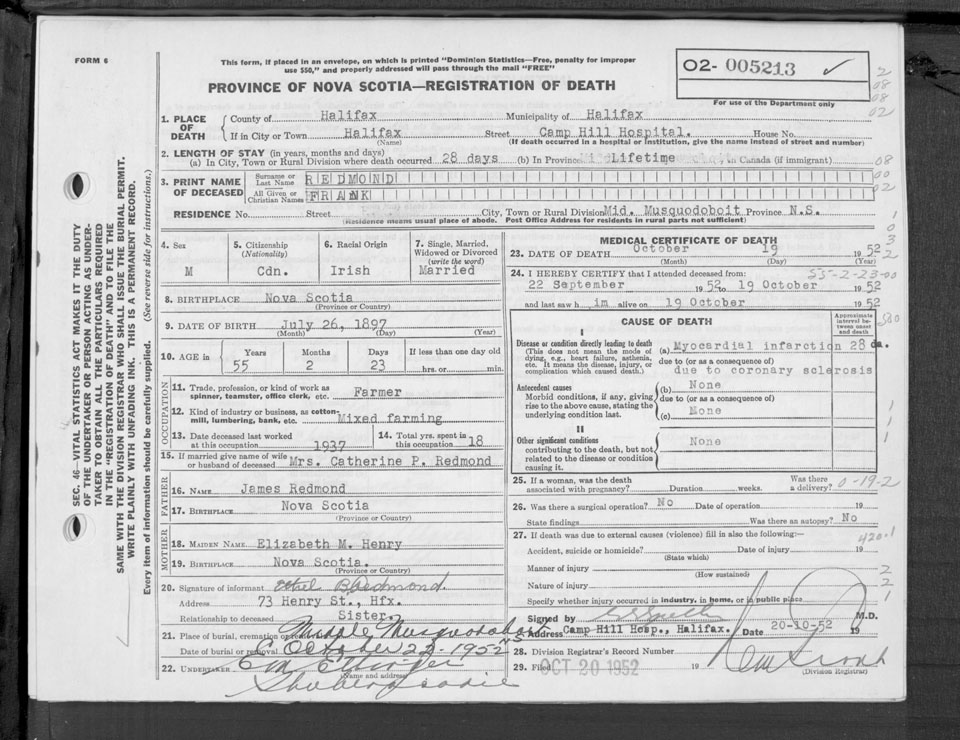 FORM 6
This form, if placed in an envelope, on which is printed "Dominion Statistics—Free, penalty for improper
use $50," and properly addressed will pass through the mail "FREE"
PROVINCE OF NOVA SCOTIA—REGISTRATION OF DEATH
O2- 005213 ✓
For use of the Department only
2
08
08
02
SEC. 46—VITAL STATISTICS ACT MAKES IT THE DUTY
OF THE UNDERTAKER OR PERSON ACTING AS UNDER-
TAKER TO OBTAIN ALL THE PARTICULARS REQUIRED
IN THE "REGISTRATION OF DEATH" AND TO FILE THE
SAME WITH THE DIVISION REGISTRAR WHO SHALL ISSUE THE BURIAL PERMIT.
WRITE PLAINLY WITH UNFADING INK. THIS IS A PERMANENT RECORD.
Every item of information should be carefully supplied. (See reverse side for instructions.)
1. PLACE OF DEATH
County of Halifax Municipality of Halifax
If in City or Town Halifax Street Camp Hill Hospital. House No.
(Name) (If death occurred in a hospital or institution, give the name instead of street and number)
2. LENGTH OF STAY (in years, months and days)
(a) In City, Town or Rural Division where death occurred 28 days (b) In Province Lifetime in Canada (if immigrant) 08
3. PRINT NAME OF DECEASED
Surname or Last Name REDMOND 00
All Given or Christian Names FRANK 02
RESIDENCE No. Street City, Town or Rural Division Mid. Musquodoboit Province N.S.
(Residence means usual place of abode. Post Office Address for residents in rural parts not sufficient)
4. Sex
M
5. Citizenship
(Nationality)
Cdn.
6. Racial Origin
Irish
7. Single, Married,
Widowed or Divorced
(write the word)
Married
8. BIRTHPLACE Nova Scotia
(Province or Country)
9. DATE OF BIRTH July 26, 1897
(Month) (Day) (Year)
10. AGE in
Years Months Days If less than one day old
55 2 23 hrs. or min.
OCCUPATION
11. Trade, profession, or kind of work as
spinner, teamster, office clerk, etc. Farmer
12. Kind of industry or business, as cotton-
mill, lumbering, bank, etc. Mixed farming
13. Date deceased last worked
at this occupation 1937
14. Total yrs. spent in
this occupation 18
15. If married give name of wife
or husband of deceased Mrs. Catherine P. Redmond
FATHER
16. NAME James Redmond
17. BIRTHPLACE Nova Scotia
(Province or Country)
MOTHER
18. MAIDEN NAME Elizabeth M. Henry
19. BIRTHPLACE Nova Scotia.
(Province or Country)
20. Signature of informant Ethel B Redmond
Address 73 Henry St., Hfx.
Relationship to deceased Sister.
21. Place of burial, cremation or removal Middle Musquodoboit NS
Date of burial or removal October 22-1952
22. UNDERTAKER E M Ettinger
(Name and address)
Shubenacadie
MEDICAL CERTIFICATE OF DEATH
23. DATE OF DEATH October 19 1952
(Month) (Day) (Year)
24. I HEREBY CERTIFY that I attended deceased from: 55-2-23-00
22 September 1952 to 19 October 1952
and last saw h im alive on 19 October 1952
CAUSE OF DEATH
Approximate
interval be-
tween onset
and death
I
Disease or condition directly leading to death
(This does not mean the mode of
dying, e.g., heart failure, asthenia,
etc. It means the disease, injury, or
complication which caused death.)
(a) Myocardial infarction 28 da.
due to (or as a consequence of)
due to coronary sclerosis
Antecedent causes
Morbid conditions, if any, giving
rise to the above cause, stating the
underlying condition last.
(b) None
due to (or as a consequence of)
(c) None
II
Other significant conditions
contributing to the death, but not
related to the disease or condition
causing it.
None
25. If a woman, was the death
associated with pregnancy? Duration weeks. Was there
a delivery? 0-19-2
26. Was there a surgical operation? No Date of operation 19
State findings Was there an autopsy? No
27. If death was due to external causes (violence) fill in also the following:— 420.1
Accident, suicide or homicide? Date of injury 19
(State which)
Manner of injury 2
(How sustained)
Nature of injury 2
Specify whether injury occurred in industry, in home, or in public place 1
Signed by M.D.
Address Camp Hill Hosp., Halifax. Date 20-10-52 19
28. Division Registrar's Record Number
29. Filed OCT 20 1952 19
(Division Registrar)